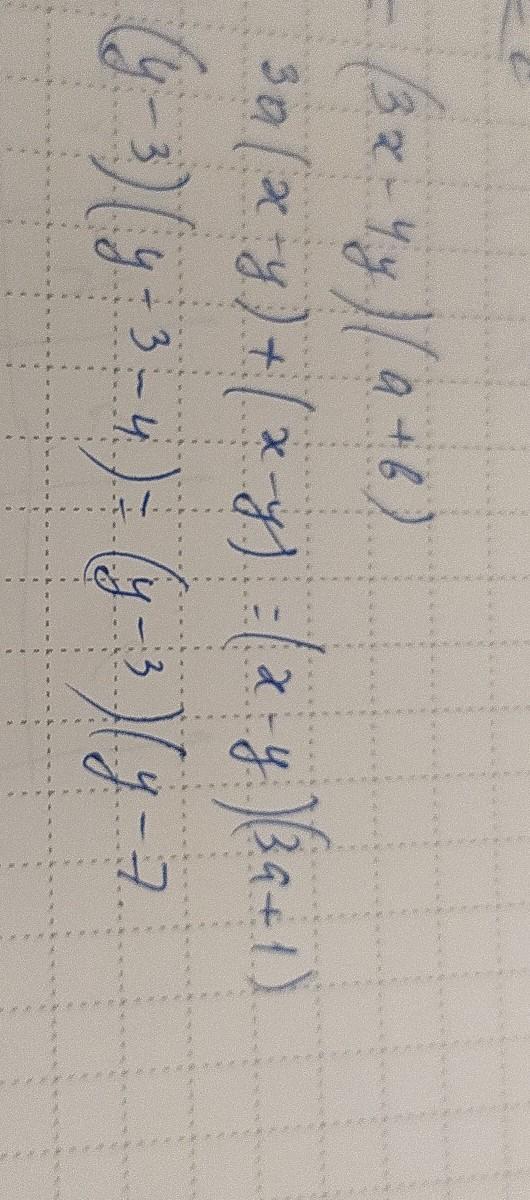 = (3x - 4y)(a + b)
3a(x - y) + (x - y) = (x - y)(3a + 1)
(y - 3)(y - 3 - 4) = (y - 3)(y - 7